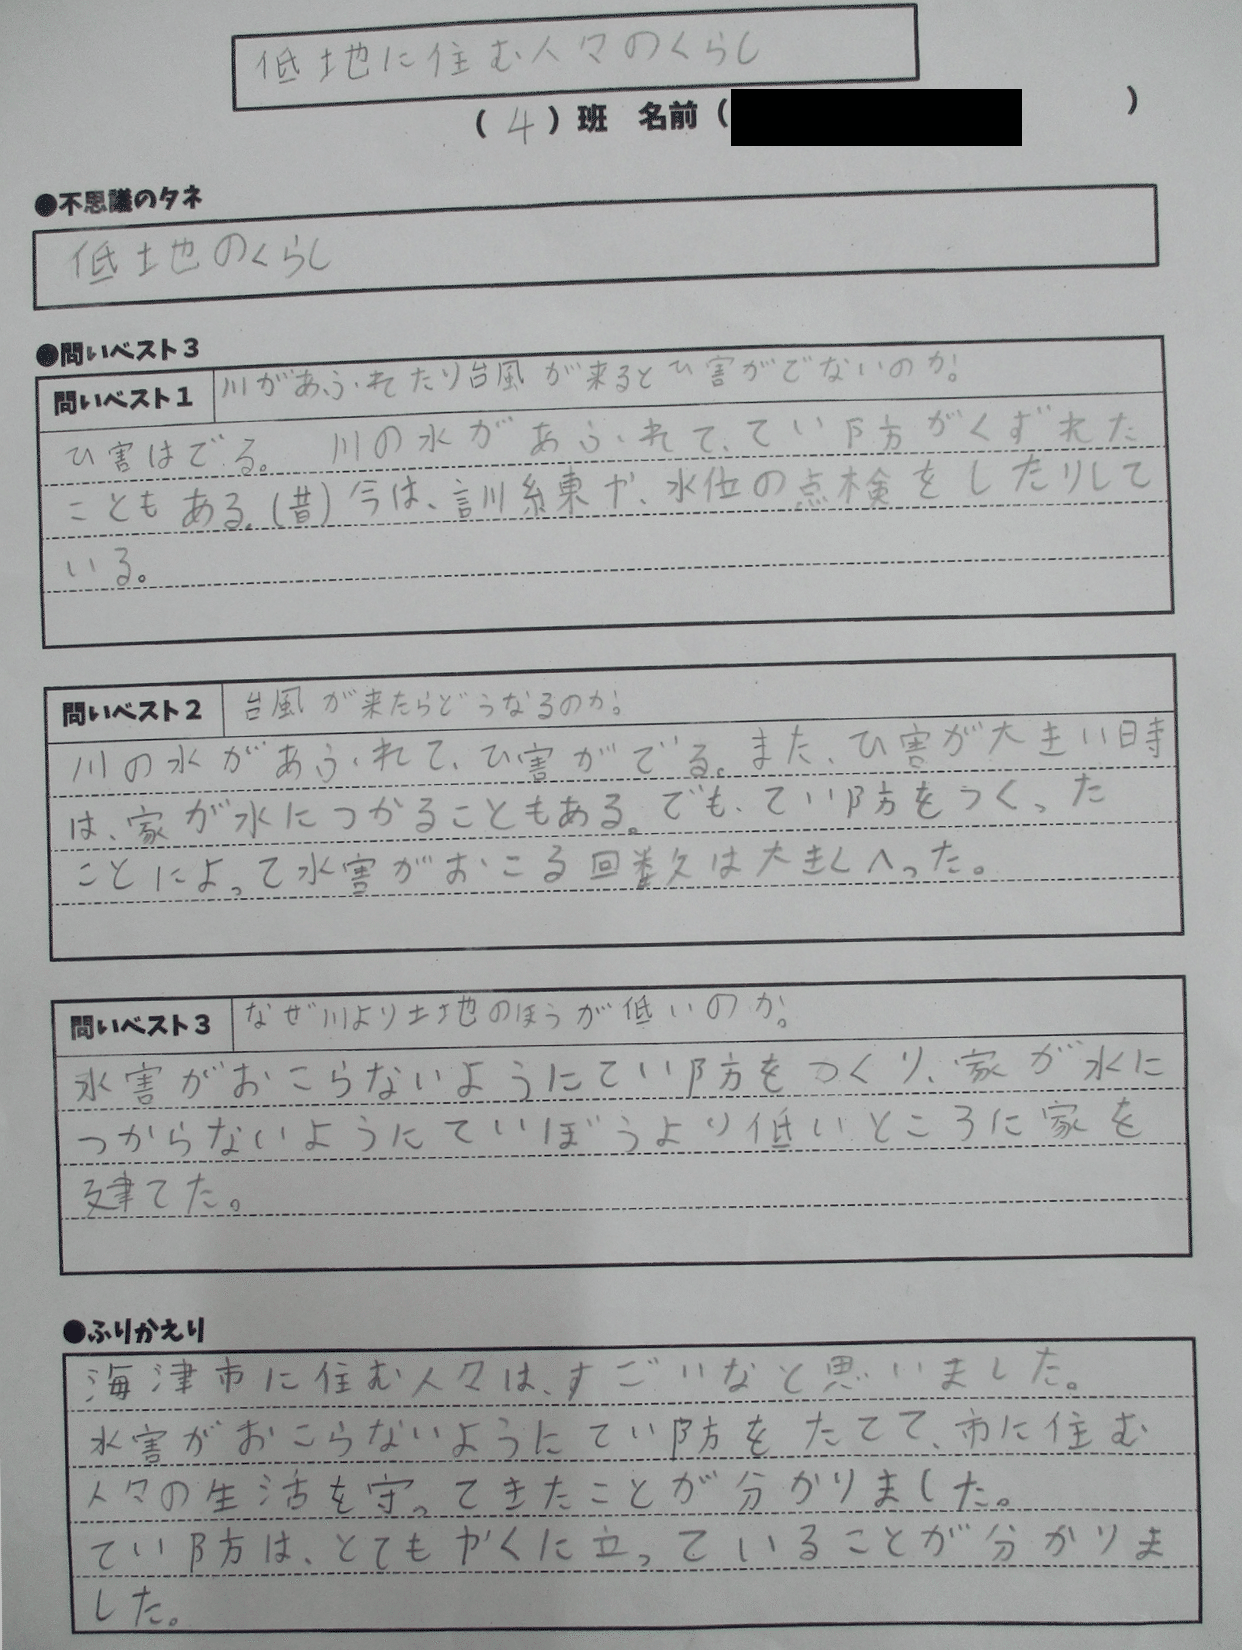 低地に住む人々のくらし
(4)班 名前( )
●不思議のタネ
低地のくらし
●問いベスト3
問いベスト1 川があふれたり台風が来るとひ害がでないのか。
ひ害はでる。川の水があふれて、てい防がくずれた
こともある。(昔)今は、訓練や、水位の点検をしたりして
いる。
問いベスト2 台風が来たらどうなるのか。
川の水があふれて、ひ害がでる。また、ひ害が大きい時
は、家が水につかることもある。でも、てい防をつくった
ことによって水害がおこる回数は大きくへった。
問いベスト3 なぜ川より土地のほうが低いのか。
水害がおこらないようにてい防をつくり、家が水に
つからないようにていぼうより低いところに家を
建てた。
●ふりかえり
海津市に住む人々は、すごいなと思いました。
水害がおこらないようにてい防をたてて、市に住む
人々の生活を守ってきたことが分かりました。
てい防は、とてもやくに立っていることが分かりま
した。